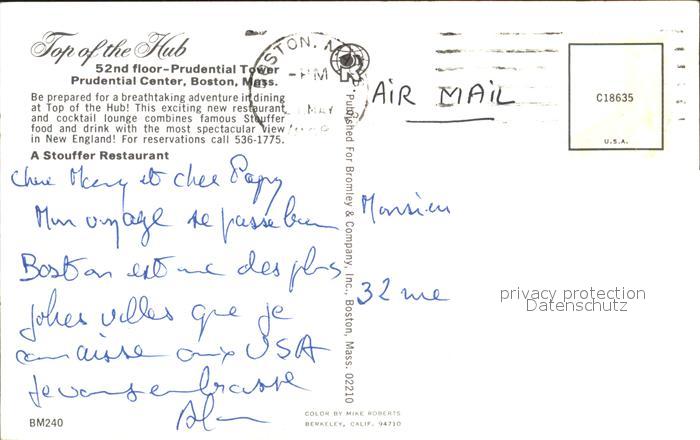 Top of the Hub
52nd floor-Prudential Tower
Prudential Center, Boston, Mass.
Be prepared for a breathtaking adventure in dining
at Top of the Hub! This exciting new restaurant
and cocktail lounge combines famous Stouffer
food and drink with the most spectacular view
in New England! For reservations call 536-1775.
A Stouffer Restaurant
Chère Mamy et cher Papy
Mon voyage se passe bien
Boston est une des plus
jolies villes que je
connaisse aux USA
Je vous embrasse
Alain
BM240
BOSTON, M
-PM
MAY
Published For Bromley & Company, Inc., Boston, Mass. 02210
AIR MAIL
C18635
U.S.A.
Monsieur
32 rue
privacy protection
Datenschutz
COLOR BY MIKE ROBERTS
BERKELEY, CALIF. 94710